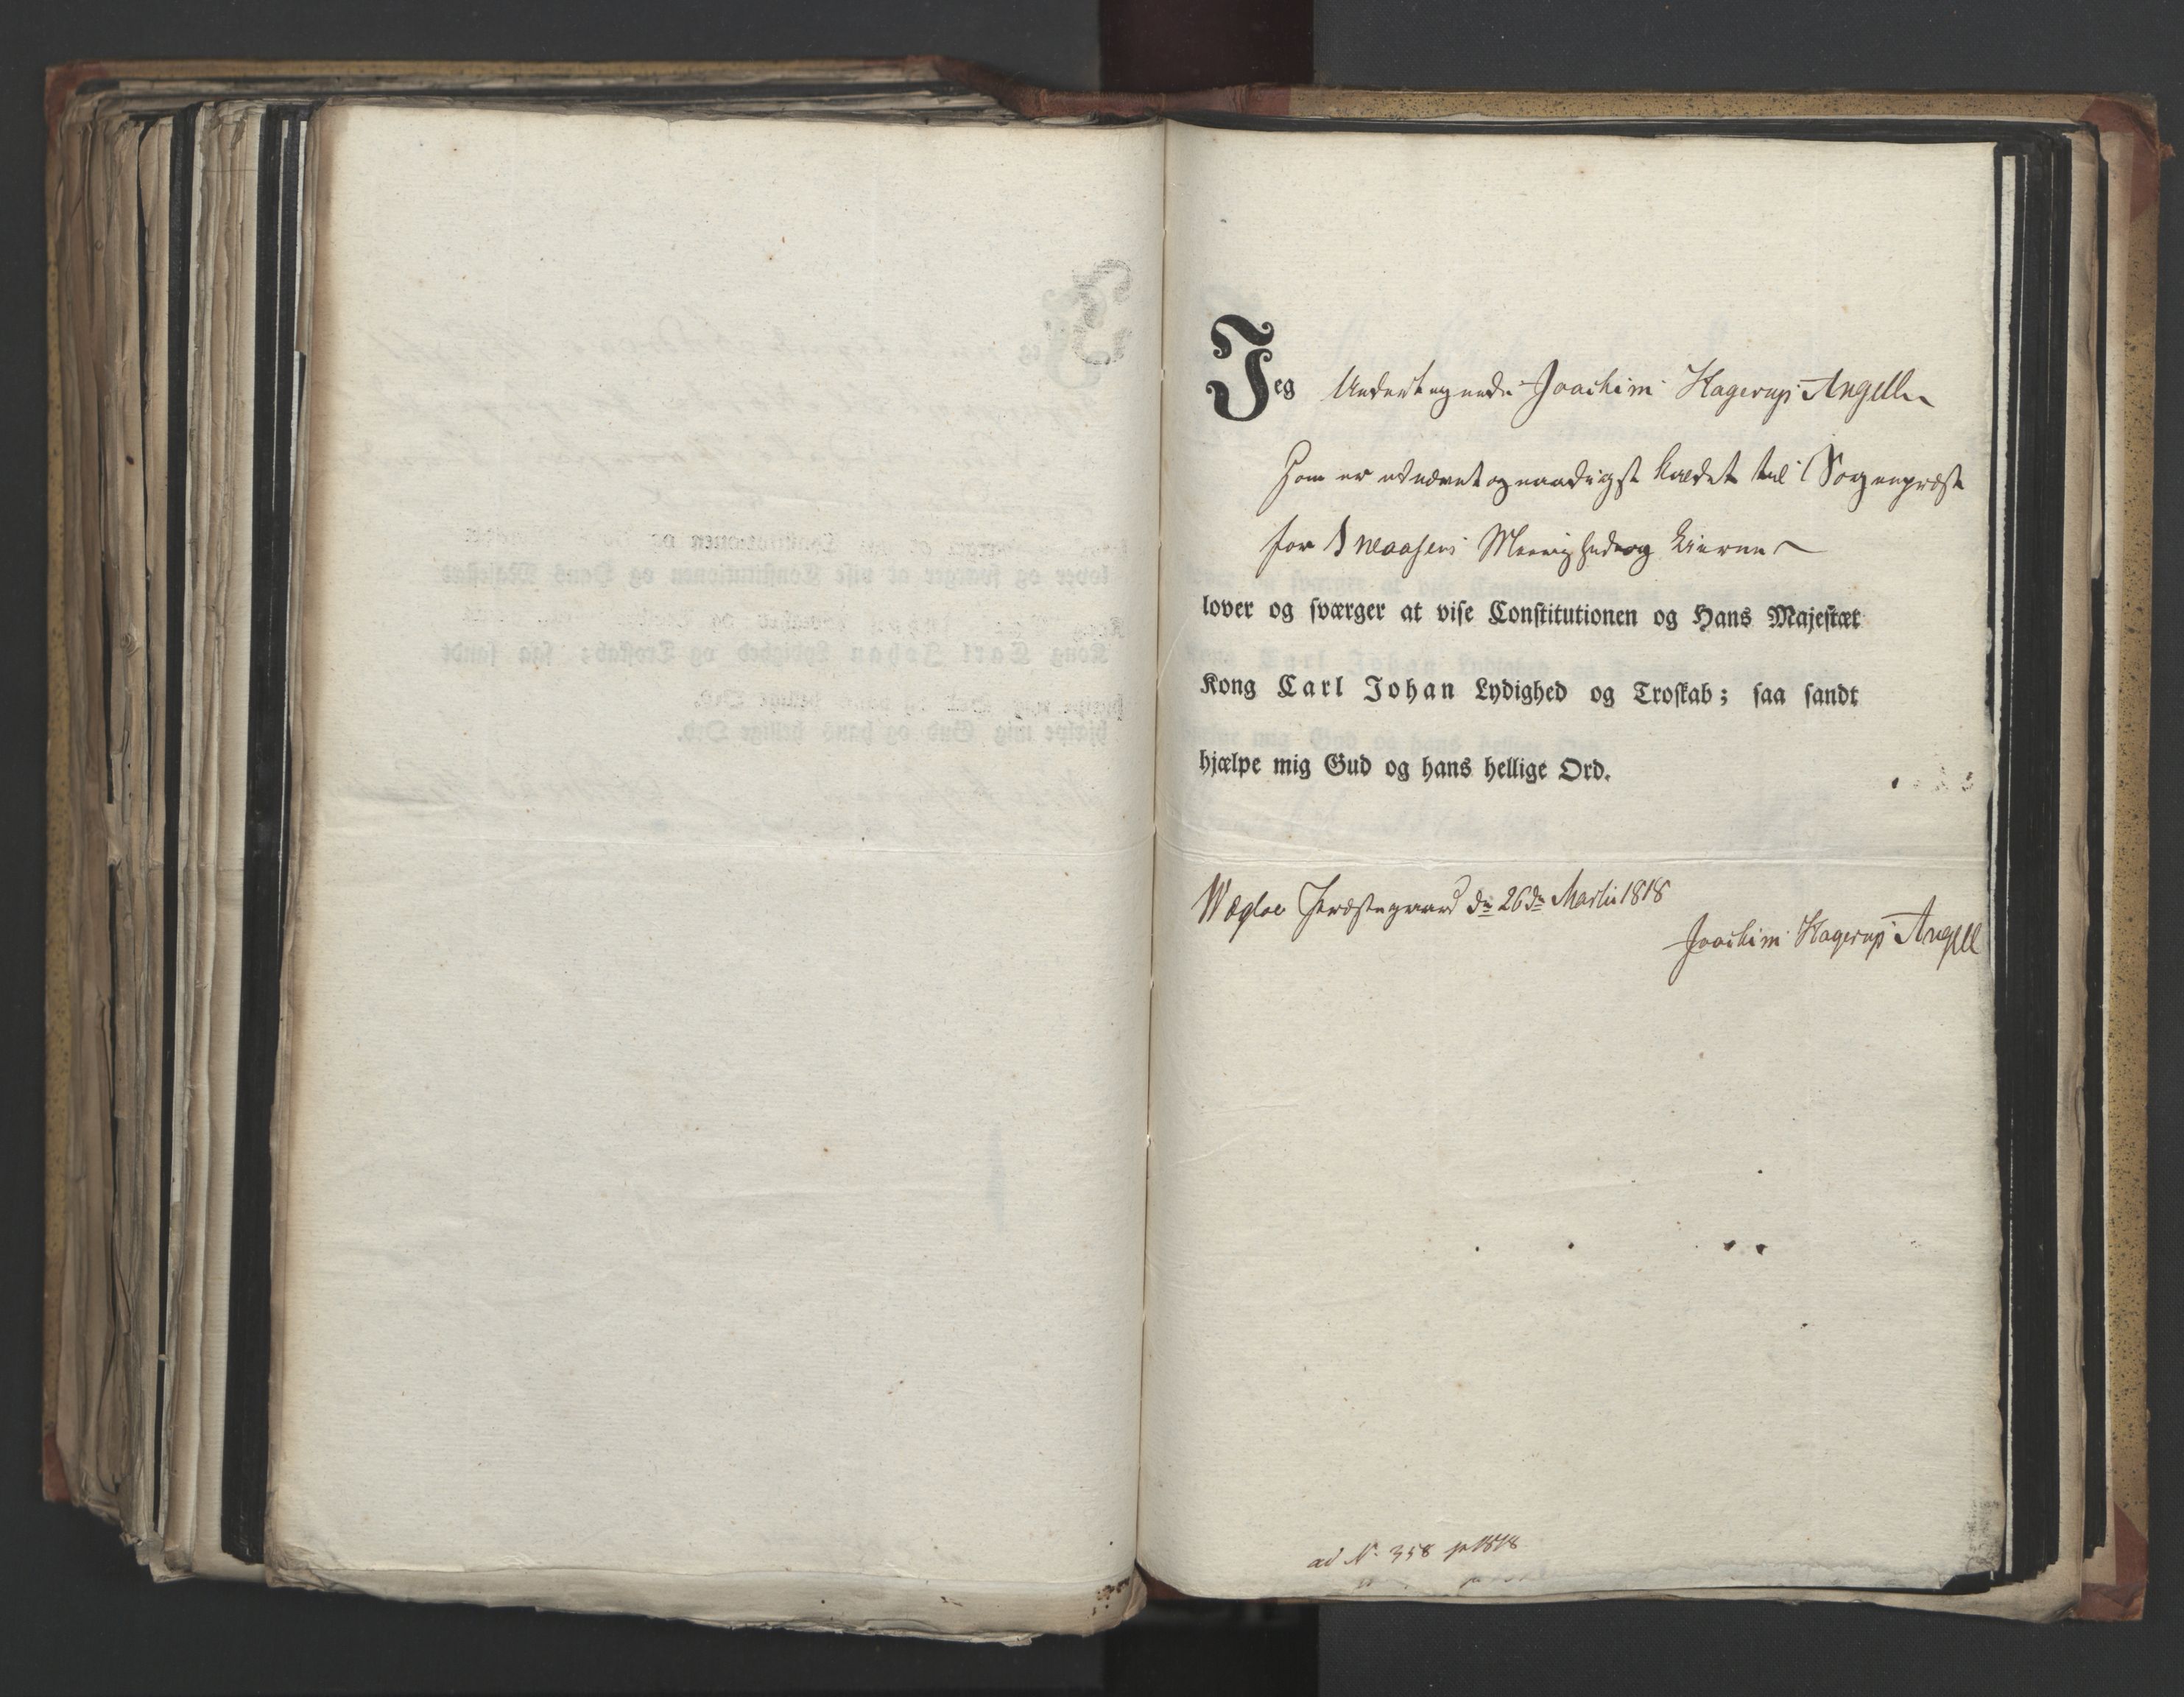 Jeg Undertegnede Joachim Kagerup Angell
Som er udnævnt og naadigst kaldet til Sognepræst
for Sneaasens Menighed og
lover og sværger at vise Constitutionen og Hans Majestæt
Kong Carl Johan Lydighed og Troskab; saa sandt
hjælpe mig Gud og hans hellige Ord.
Præstegaard dn 26de Martii 1818
Joachim Kagerup Angell
ad N. 358 p 1818